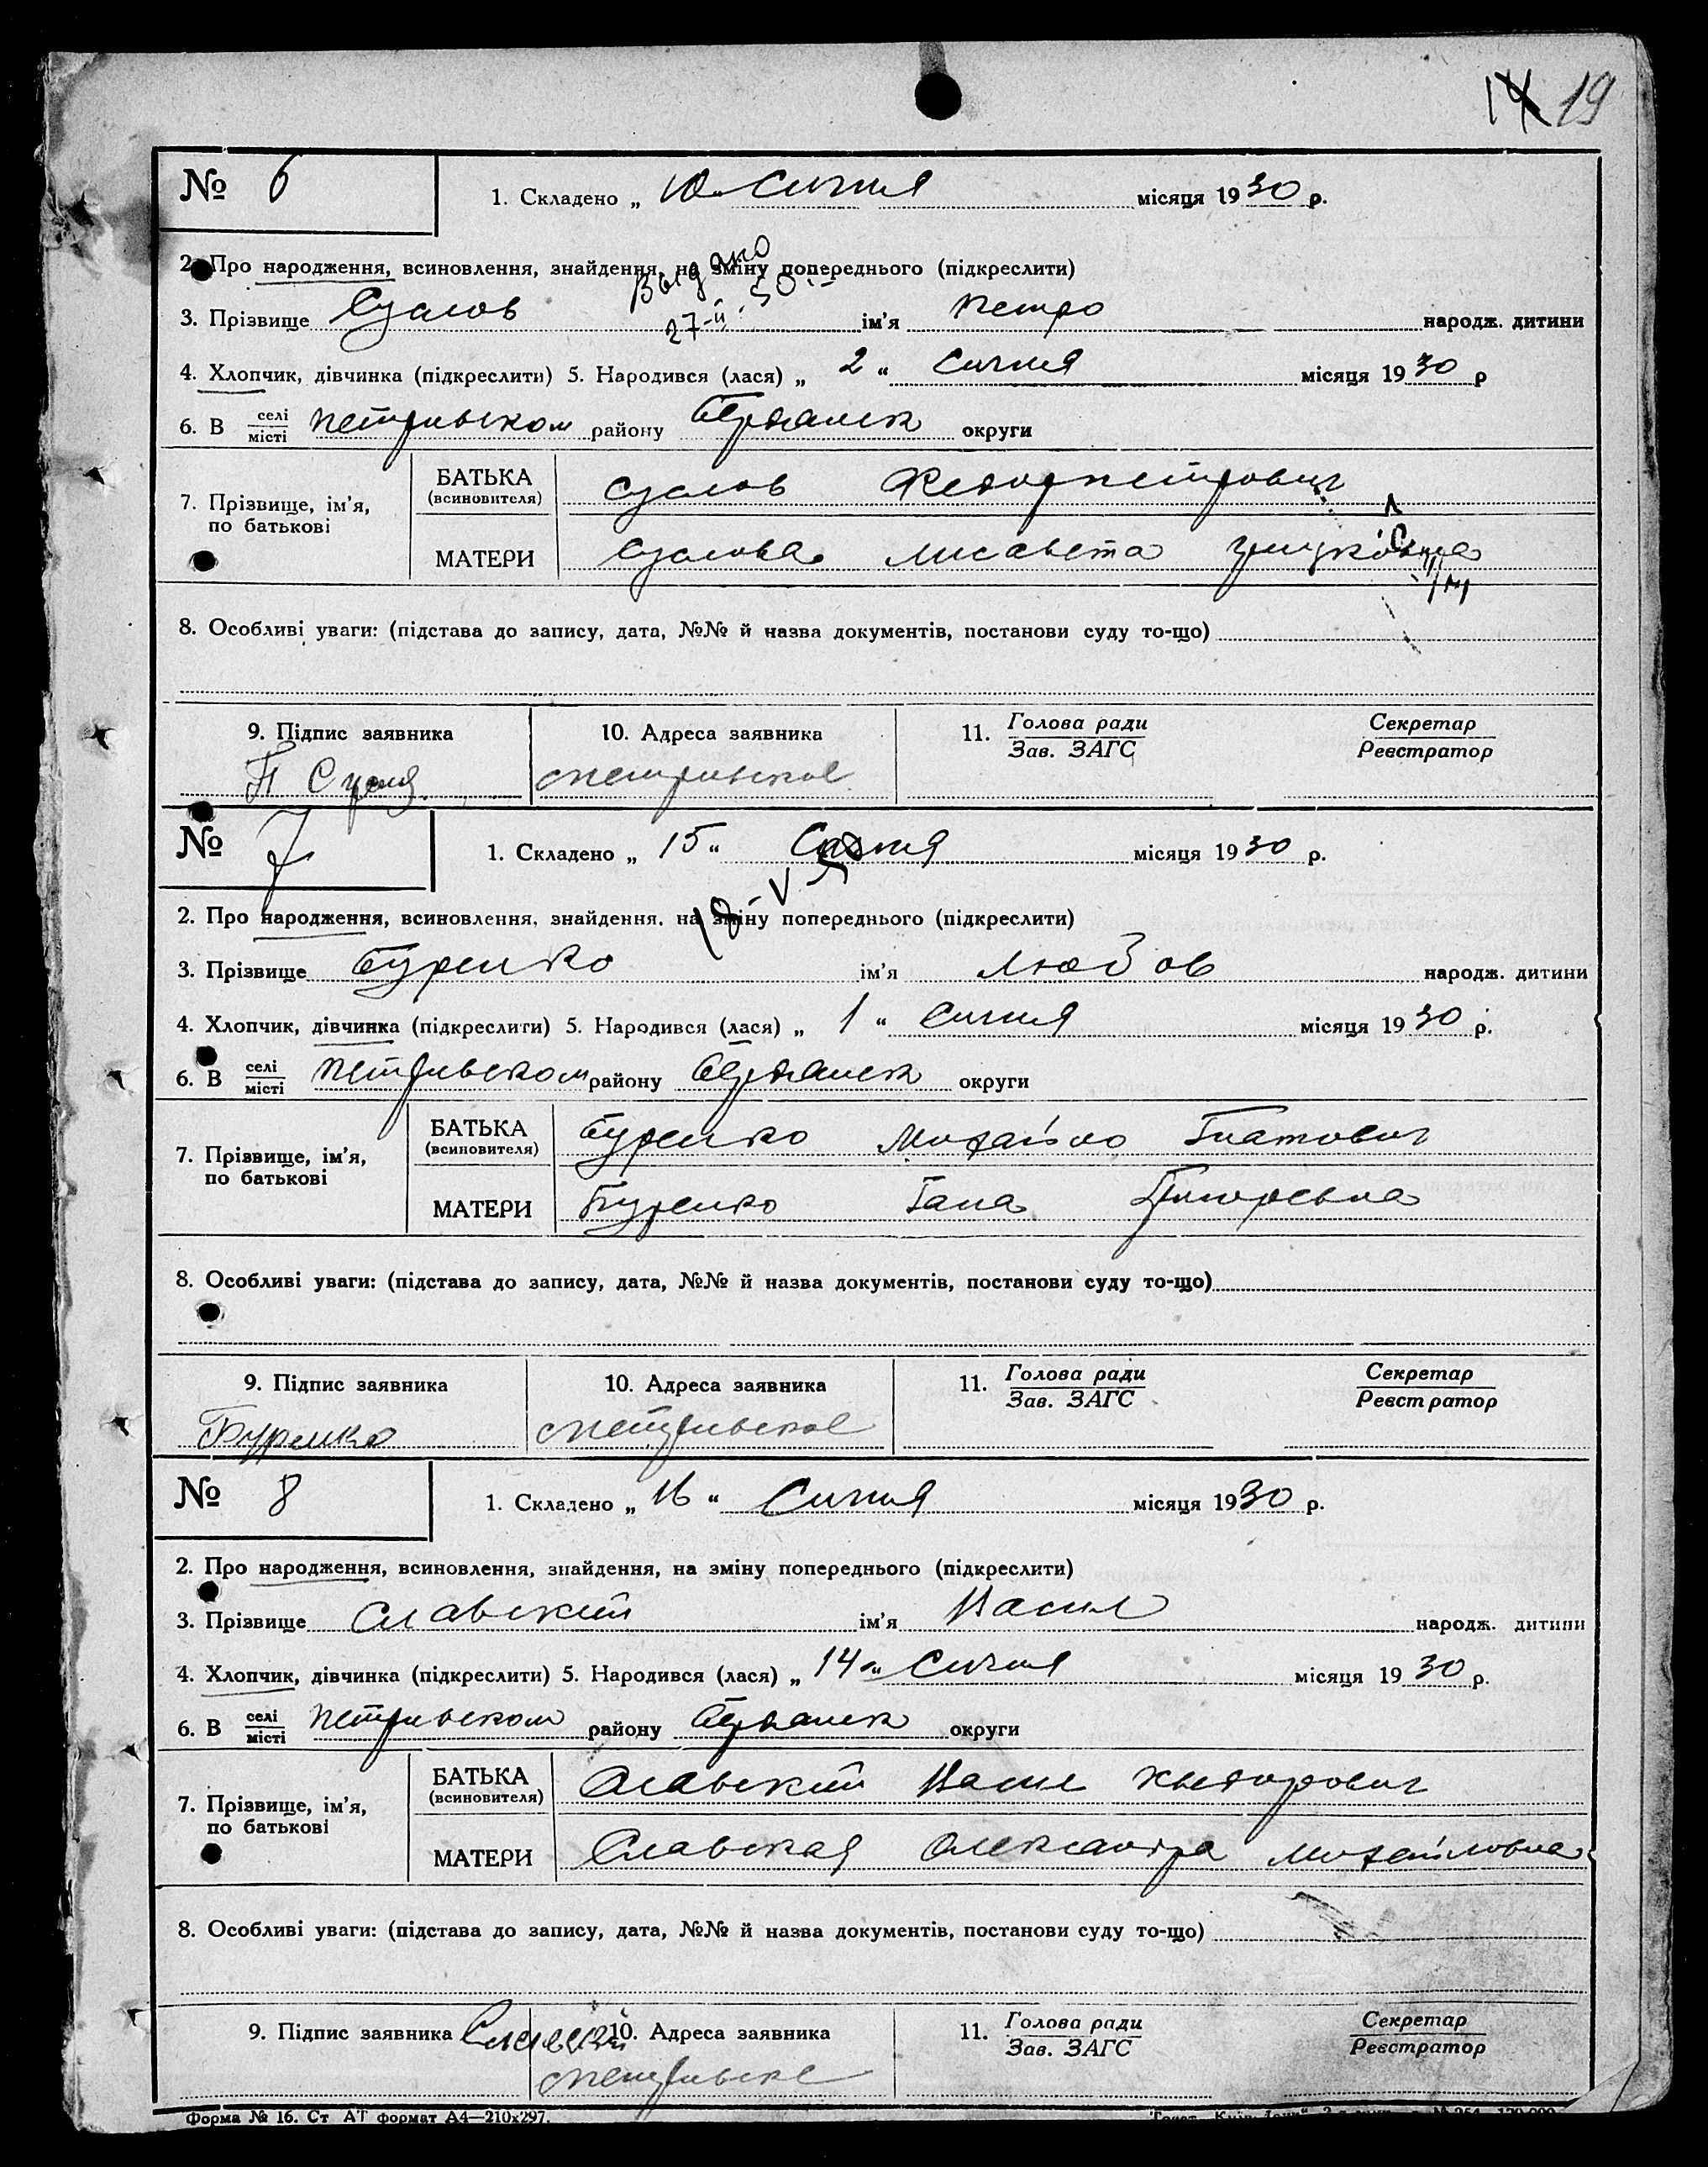 19
№ 6
1. Складено „ 10 “ Сичня місяця 1930 р.
2. Про народження, всиновлення, знайдення, на зміну попереднього (підкреслити)
Выдано
27-II-30
3. Прізвище Суслов ім'я Петро народж. дитини
4. Хлопчик, дівчинка (підкреслити) 5. Народився (лася) „ 2 “ Сичня місяця 1930 р
6. В селі/місті Петривском району Бердянск округи
7. Прізвище, ім'я, по батькові
БАТЬКА (всиновителя) Суслов Федор Петрович
МАТЕРИ Суслова Лисавета
8. Особливі уваги: (підстава до запису, дата, №№ й назва документів, постанови суду то-що)
9. Підпис заявника 10. Адреса заявника 11. Голова ради/Зав. ЗАГС Секретар/Реєстратор
с Петривское
№ 7
1. Складено „ 15 “ Сичня місяця 1930 р.
18-V-
2. Про народження, всиновлення, знайдення, на зміну попереднього (підкреслити)
3. Прізвище Буренко ім'я Любов народж. дитини
4. Хлопчик, дівчинка (підкреслити) 5. Народився (лася) „ 1 “ Сичня місяця 1930 р.
6. В селі/місті Петривском району Бердянск округи
7. Прізвище, ім'я, по батькові
БАТЬКА (всиновителя) Буренко Михайло Гнатович
МАТЕРИ Буренко Гана
8. Особливі уваги: (підстава до запису, дата, №№ й назва документів, постанови суду то-що)
9. Підпис заявника 10. Адреса заявника 11. Голова ради/Зав. ЗАГС Секретар/Реєстратор
Буренко с Петривское
№ 8
1. Складено „ 16 “ Сичня місяця 1930 р.
2. Про народження, всиновлення, знайдення, на зміну попереднього (підкреслити)
3. Прізвище Славский ім'я Василь народж. дитини
4. Хлопчик, дівчинка (підкреслити) 5. Народився (лася) „ 14 “ Сичня місяця 1930 р.
6. В селі/місті Петривском району Бердянск округи
7. Прізвище, ім'я, по батькові
БАТЬКА (всиновителя) Славский Василь Хведорович
МАТЕРИ Славская Олександра Михайловна
8. Особливі уваги: (підстава до запису, дата, №№ й назва документів, постанови суду то-що)
9. Підпис заявника 10. Адреса заявника 11. Голова ради/Зав. ЗАГС Секретар/Реєстратор
Славский с Петривске
Форма № 16. Ст АТ формат А4—210х297.